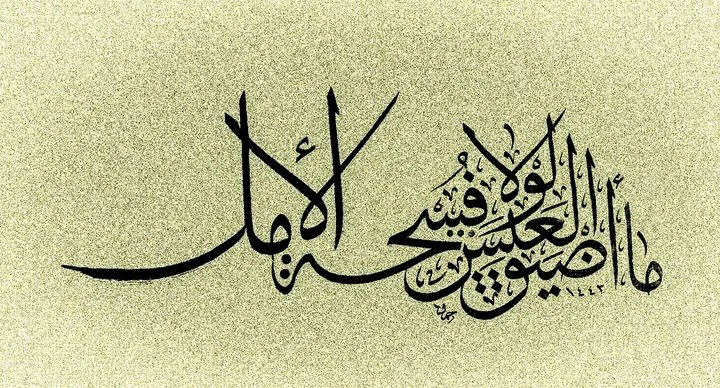 ما أضيق العيش لولا فسحة الأمل
١٤٤٢